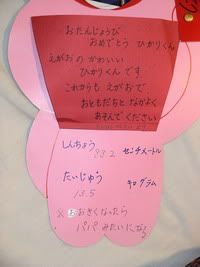 おたんじょうび
おめでとう ひかりくん
えがおの かわいい
ひかりくん です
これからも えがおで
おともだちと なかよく
あそんでください
しんちょう
93.2 センチメートル
たいじゅう
13.5 キログラム
おおきくなったら
パパ みたいになる